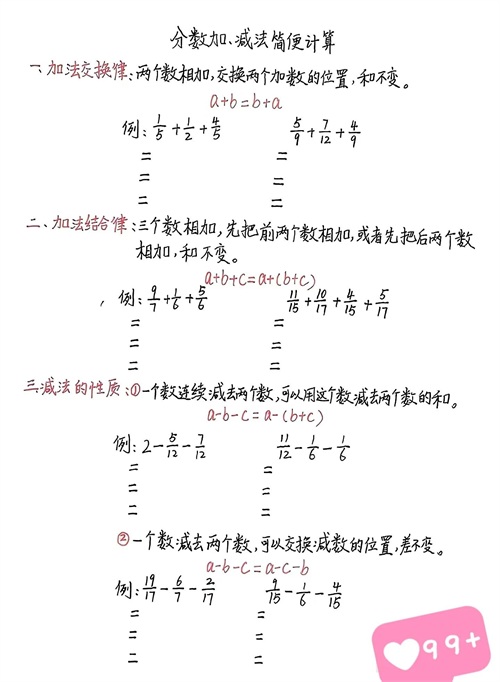 分数加、减法简便计算
一、加法交换律:两个数相加,交换两个加数的位置,和不变。
a+b=b+a
例:1/5+1/2+4/5 5/9+7/12+4/9
= =
= =
= =
二、加法结合律:三个数相加,先把前两个数相加,或者先把后两个数
相加,和不变。
a+b+c=a+(b+c)
例:9/7+1/6+5/6 11/15+10/17+4/15+5/17
= =
= =
= =
三.减法的性质:①一个数连续减去两个数,可以用这个数减去两个数的和。
a-b-c=a-(b+c)
例:2-5/12-7/12 11/12-1/6-1/6
= =
= =
= =
②一个数减去两个数,可以交换减数的位置,差不变。
a-b-c=a-c-b
例:19/17-6/7-2/17 9/15-1/6-4/15
= =
= =
= =
99+